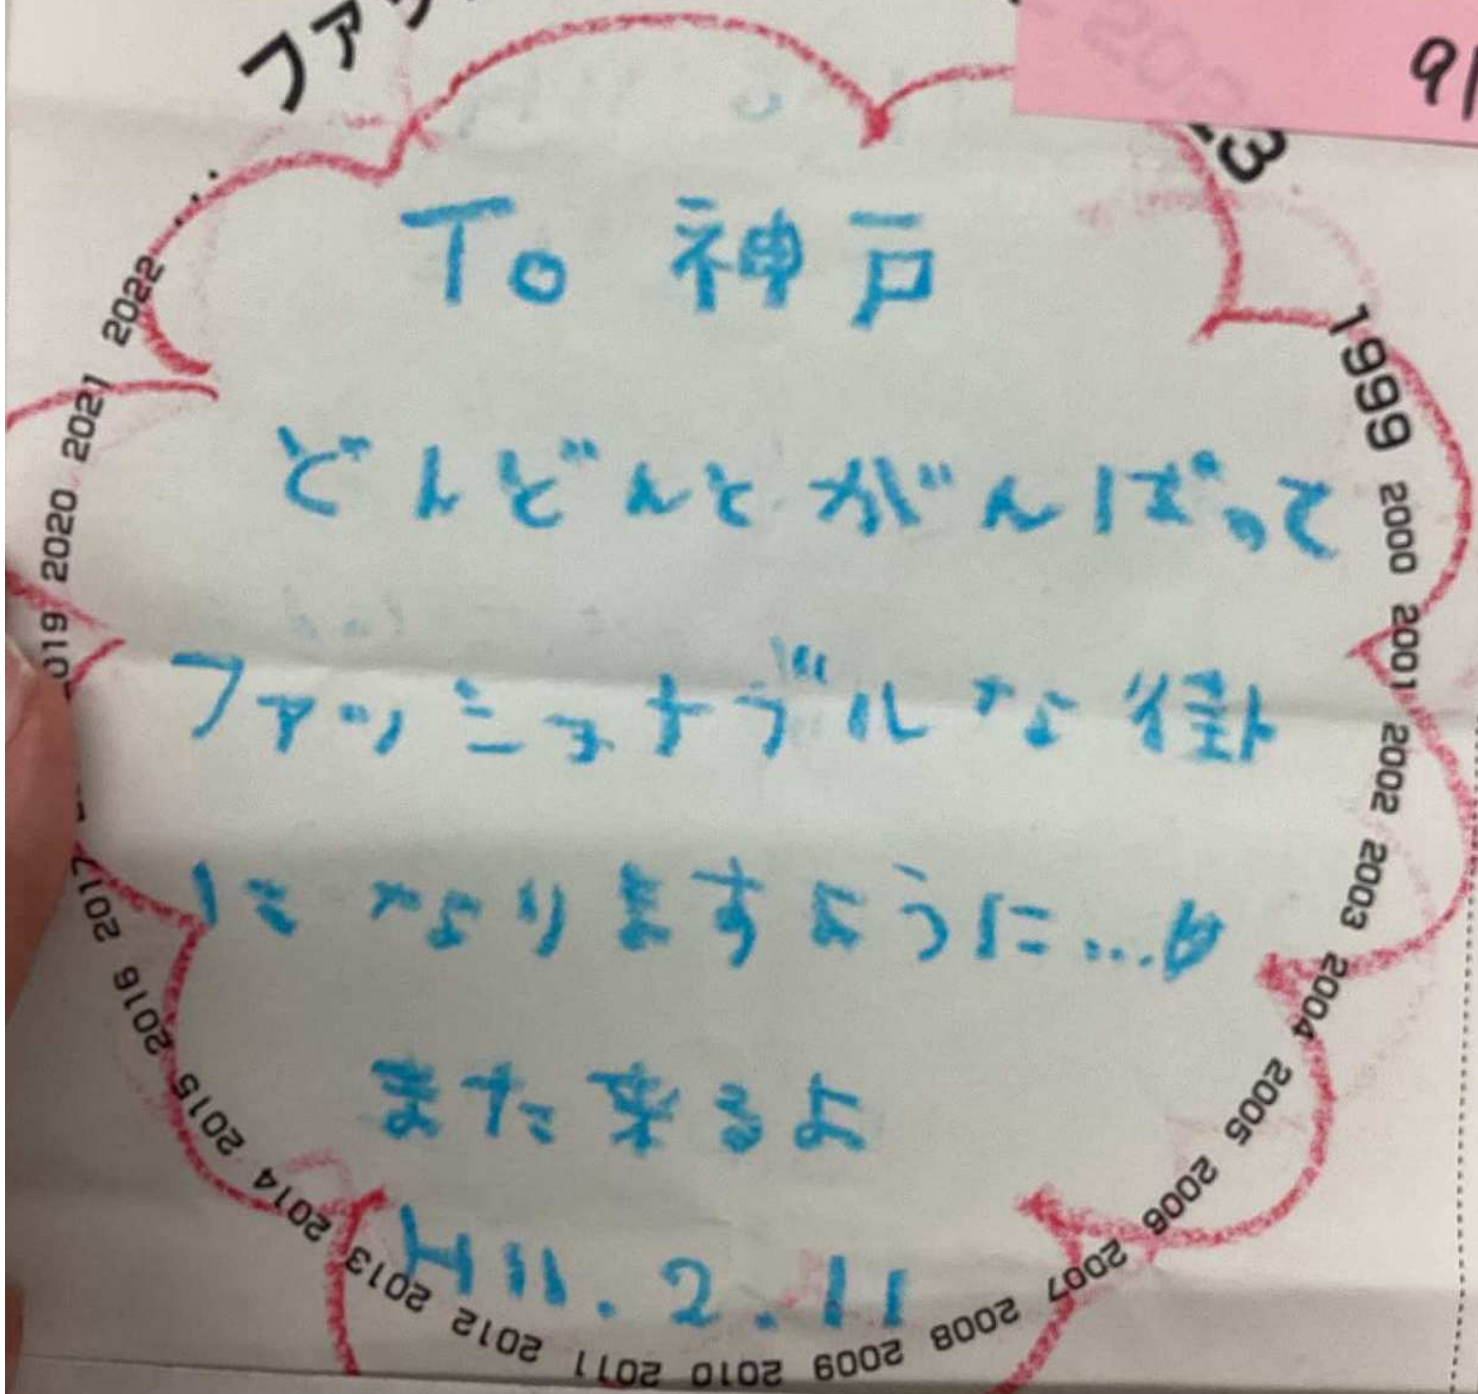 ファッ
23
91
To 神戸
どんどんと がんばって
ファッショナブルな街
になりますように…
また来るよ
H11.2.11
1999 2000 2001 2002 2003 2004 2005 2006 2007 2008 2009 2010 2011 2012 2013 2014 2015 2016 2017
019 2020 2021 2022 …